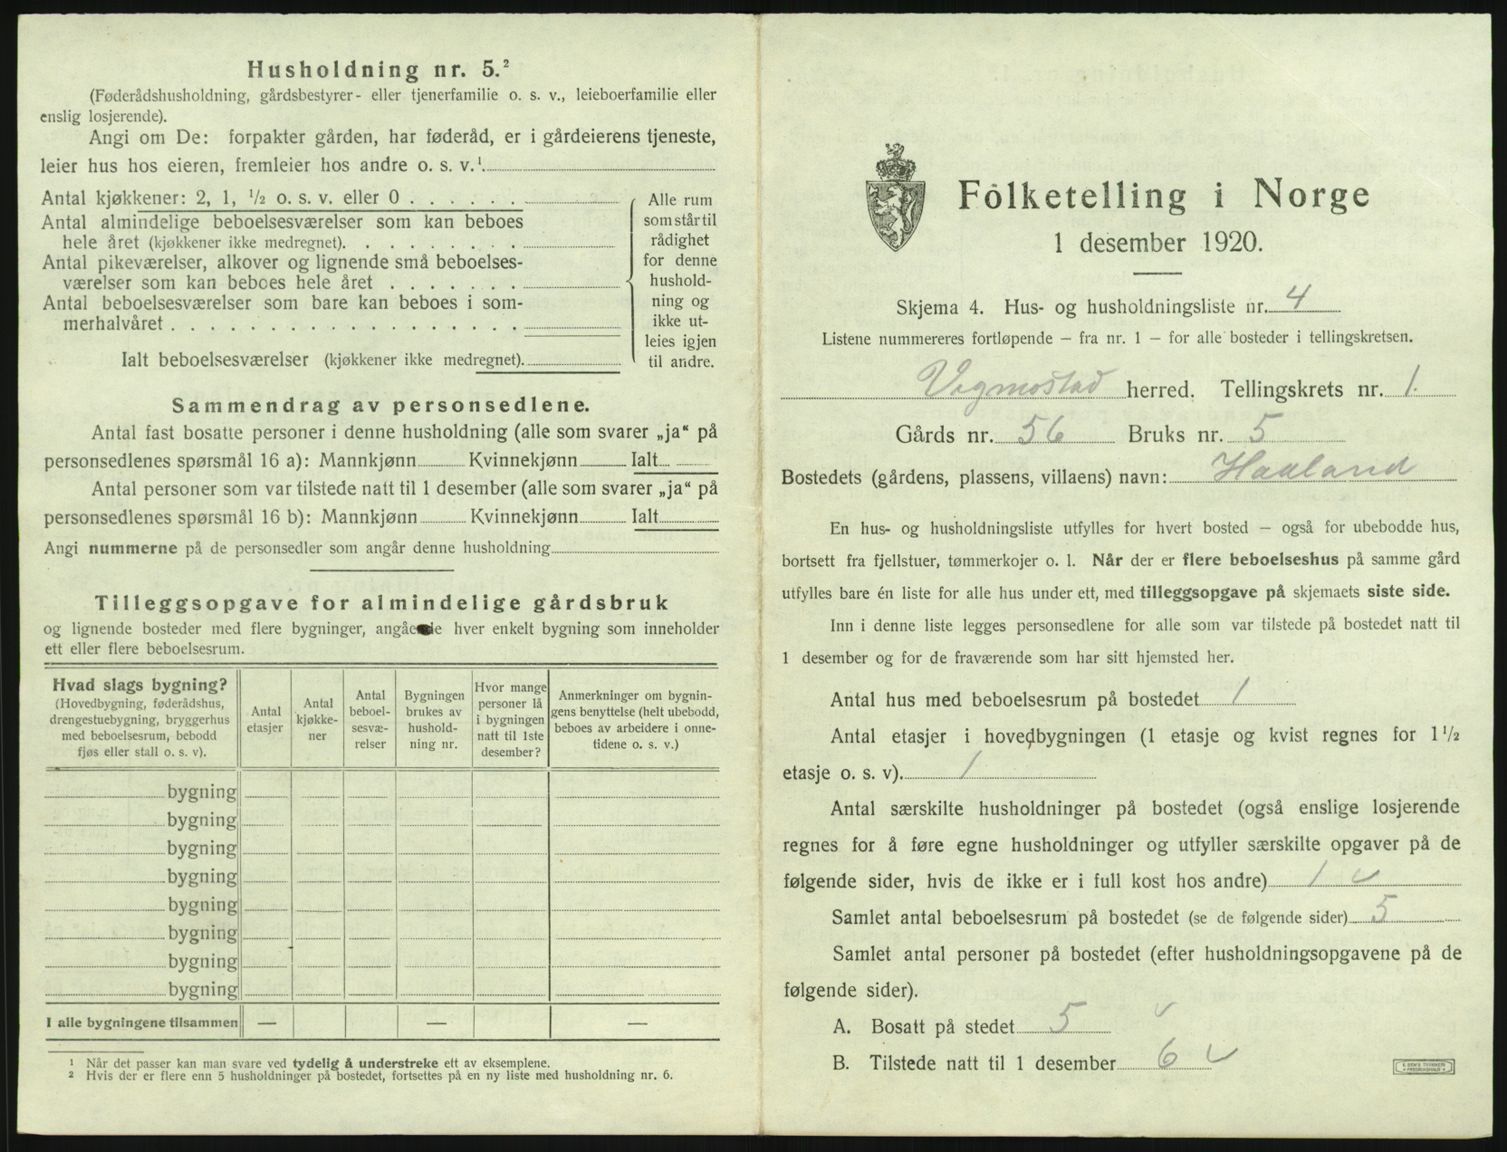 Husholdning nr. 5.²
(Føderådshusholdning, gårdsbestyrer- eller tjenerfamilie o. s. v., leieboerfamilie eller
enslig losjerende).
Angi om De: forpakter gården, har føderåd, er i gårdeierens tjeneste,
leier hus hos eieren, fremleier hos andre o. s. v.¹
Antal kjøkkener: 2, 1, ½ o. s. v. eller 0
Antal almindelige beboelsesværelser som kan beboes
hele året (kjøkkener ikke medregnet).
Antal pikeværelser, alkover og lignende små beboelses-
værelser som kan beboes hele året
Antal beboelsesværelser som bare kan beboes i som-
merhalvåret
Ialt beboelsesværelser (kjøkkener ikke medregnet).
Alle rum
som står til
rådighet
for denne
hushold-
ning og
ikke ut-
leies igjen
til andre.
Sammendrag av personsedlene.
Antal fast bosatte personer i denne husholdning (alle som svarer „ja“ på
personsedlenes spørsmål 16 a): Mannkjønn Kvinnekjønn Ialt
Antal personer som var tilstede natt til 1 desember (alle som svarer „ja“ på
personsedlenes spørsmål 16 b): Mannkjønn Kvinnekjønn Ialt
Angi nummerne på de personsedler som angår denne husholdning
Tilleggsopgave for almindelige gårdsbruk
og lignende bosteder med flere bygninger, angående hver enkelt bygning som inneholder
ett eller flere beboelsesrum.
Hvad slags bygning?
(Hovedbygning, føderådshus,
drengestuebygning, bryggerhus
med beboelsesrum, bebodd
fjøs eller stall o. s. v).
Antal
etasjer
Antal
kjøkke-
ner
Antal
beboel-
sesvæ-
relser
Bygningen
brukes av
hushold-
ning nr.
Hvor mange
personer lå
i bygningen
natt til 1ste
desember?
Anmerkninger om bygnin-
gens benyttelse (helt ubebodd,
beboes av arbeidere i onne-
tidene o. s. v.)
bygning
bygning
bygning
bygning
bygning
bygning
bygning
bygning
I alle bygningene tilsammen — — —
¹ Når det passer kan man svare ved tydelig å understreke ett av eksemplene.
² Hvis der er flere enn 5 husholdninger på bostedet, fortsettes på en ny liste med husholdning nr. 6.
Folketelling i Norge
1 desember 1920.
Skjema 4. Hus- og husholdningsliste nr. 4
Listene nummereres fortløpende — fra nr. 1 — for alle bosteder i tellingskretsen.
Vigmostad herred. Tellingskrets nr. 1.
Gårds nr. 56 Bruks nr. 5
Bostedets (gårdens, plassens, villaens) navn: Haaland
En hus- og husholdningsliste utfylles for hvert bosted — også for ubebodde hus,
bortsett fra fjellstuer, tømmerkojer o. l. Når der er flere beboelseshus på samme gård
utfylles bare én liste for alle hus under ett, med tilleggsopgave på skjemaets siste side.
Inn i denne liste legges personsedlene for alle som var tilstede på bostedet natt til
1 desember og for de fraværende som har sitt hjemsted her.
Antal hus med beboelsesrum på bostedet 1
Antal etasjer i hovedbygningen (1 etasje og kvist regnes for 1½
etasje o. s. v). 1
Antal særskilte husholdninger på bostedet (også enslige losjerende
regnes for å føre egne husholdninger og utfyller særskilte opgaver på de
følgende sider, hvis de ikke er i full kost hos andre) 1
Samlet antal beboelsesrum på bostedet (se de følgende sider) 5
Samlet antal personer på bostedet (efter husholdningsopgavene på de
følgende sider).
A. Bosatt på stedet 5
B. Tilstede natt til 1 desember 6